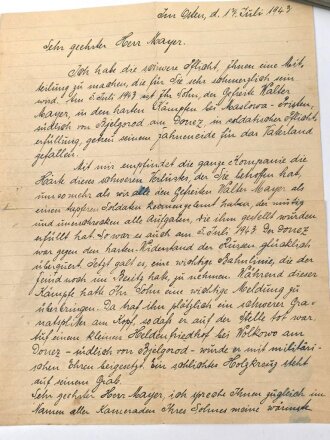 Im Osten, d. 14. Juli 1943
Sehr geehrter Herr Mayer.
Ich habe die schwere Pflicht, Ihnen eine Mit-
teilung zu machen, die für Sie sehr schmerzlich sein
wird. Am 5. Juli 1943 ist Ihr Sohn, der Gefreite Walter
Mayer, in den harten Kämpfen bei Maslowa-Pristan,
südlich von Bjelgorod am Donez, in soldatischer Pflicht-
erfüllung, getreu seinem Fahneneide für das Vaterland
gefallen.
Mit mir empfindet die ganze Kompanie die
Härte dieses schweren Verlustes, der Sie betroffen hat,
umsomehr als wir den Gefreiten Walter Mayer als
einen tapferen Soldaten kennengelernt haben, der mutig
und unerschrocken alle Aufgaben, die ihm gestellt wurden
erfüllt hat. So war es auch am 5. Juli 1943. Der Donez
war gegen den harten Widerstand der Russen glücklich
überquert. Jetzt galt es, eine wichtige Bahnlinie, die der
Feind noch im Besitz hatte zu nehmen. Während dieser
Kämpfe hatte Ihr Sohn eine wichtige Meldung zu
überbringen. Da traf ihn plötzlich ein schwerer Gra-
natsplitter am Kopf, sodaß er auf der Stelle tot war.
Auf einem kleinen Heldenfriedhof bei Wolkowo am
Donez - südlich von Bjelgorod - wurde er mit militäri-
schen Ehren beigesetzt. Ein schlichtes Holzkreuz steht
auf seinem Grab.
Sehr geehrter Herr Mayer, ich spreche Ihnen zugleich im
Namen aller Kameraden Ihres Sohnes meine wärmste